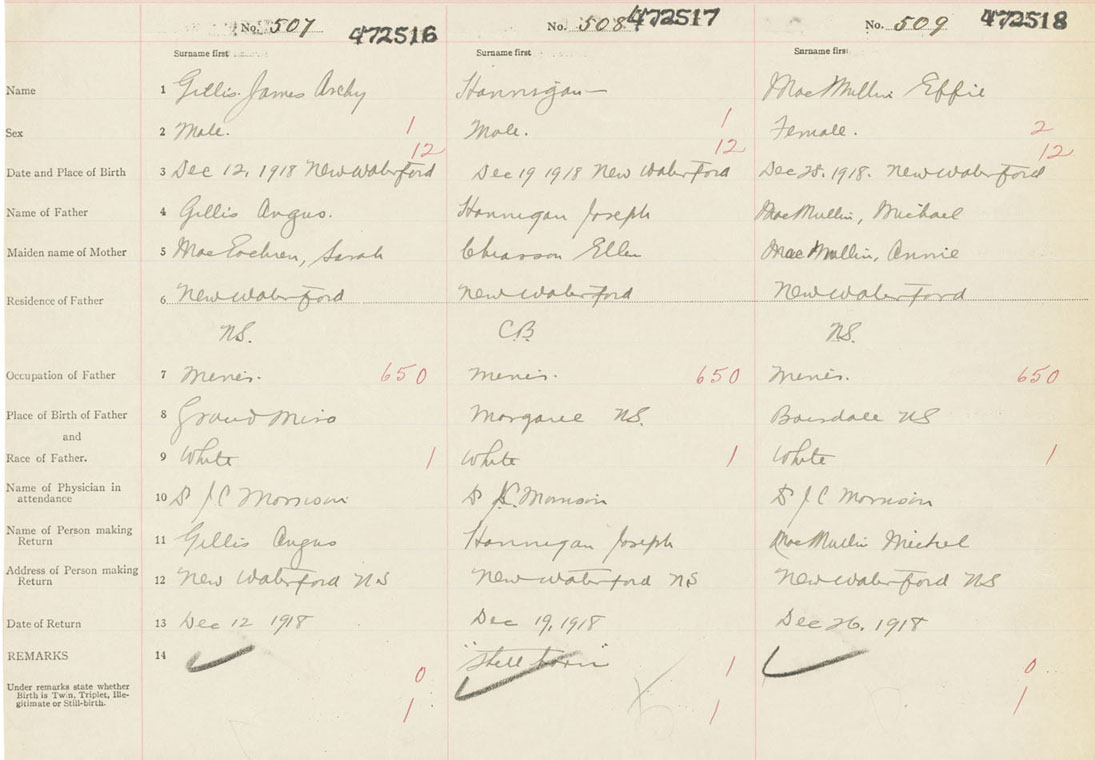 No. 507 472516 No. 508 472517 No. 509 472518
Surname first Surname first Surname first
Name 1 Gillis James Archy Hannigan MacMullin Effie
Sex 2 Male. 1 Male. 1 Female. 2
12 12 12
Date and Place of Birth 3 Dec 12, 1918 New Waterford Dec 19 1918 New Waterford Dec 25. 1918. New Waterford
Name of Father 4 Gillis Angus. Hannigan Joseph MacMullin, Michael
Maiden name of Mother 5 MacEachren, Sarah Chiasson Ellen MacMullin, Annie
Residence of Father 6 New Waterford New Waterford New Waterford
NS. C.B. NS.
Occupation of Father 7 650 650 650
Place of Birth of Father 8 Grand Mira Margaree NS. Boisdale NS
and
Race of Father. 9 White 1 White 1 White 1
Name of Physician in
attendance 10 J C Morrison J.C. Morrison J C Morrison
Name of Person making
Return 11 Gillis Angus Hannigan Joseph MacMullin Michel
Address of Person making
Return 12 New Waterford NS New Waterford NS New Waterford NS
Date of Return 13 Dec 12 1918 Dec 19, 1918 Dec 26, 1918
REMARKS 14 "Still born" 1 0
0
Under remarks state whether
Birth is Twin, Triplet, Ille-
gitimate or Still-birth. 1 1 1